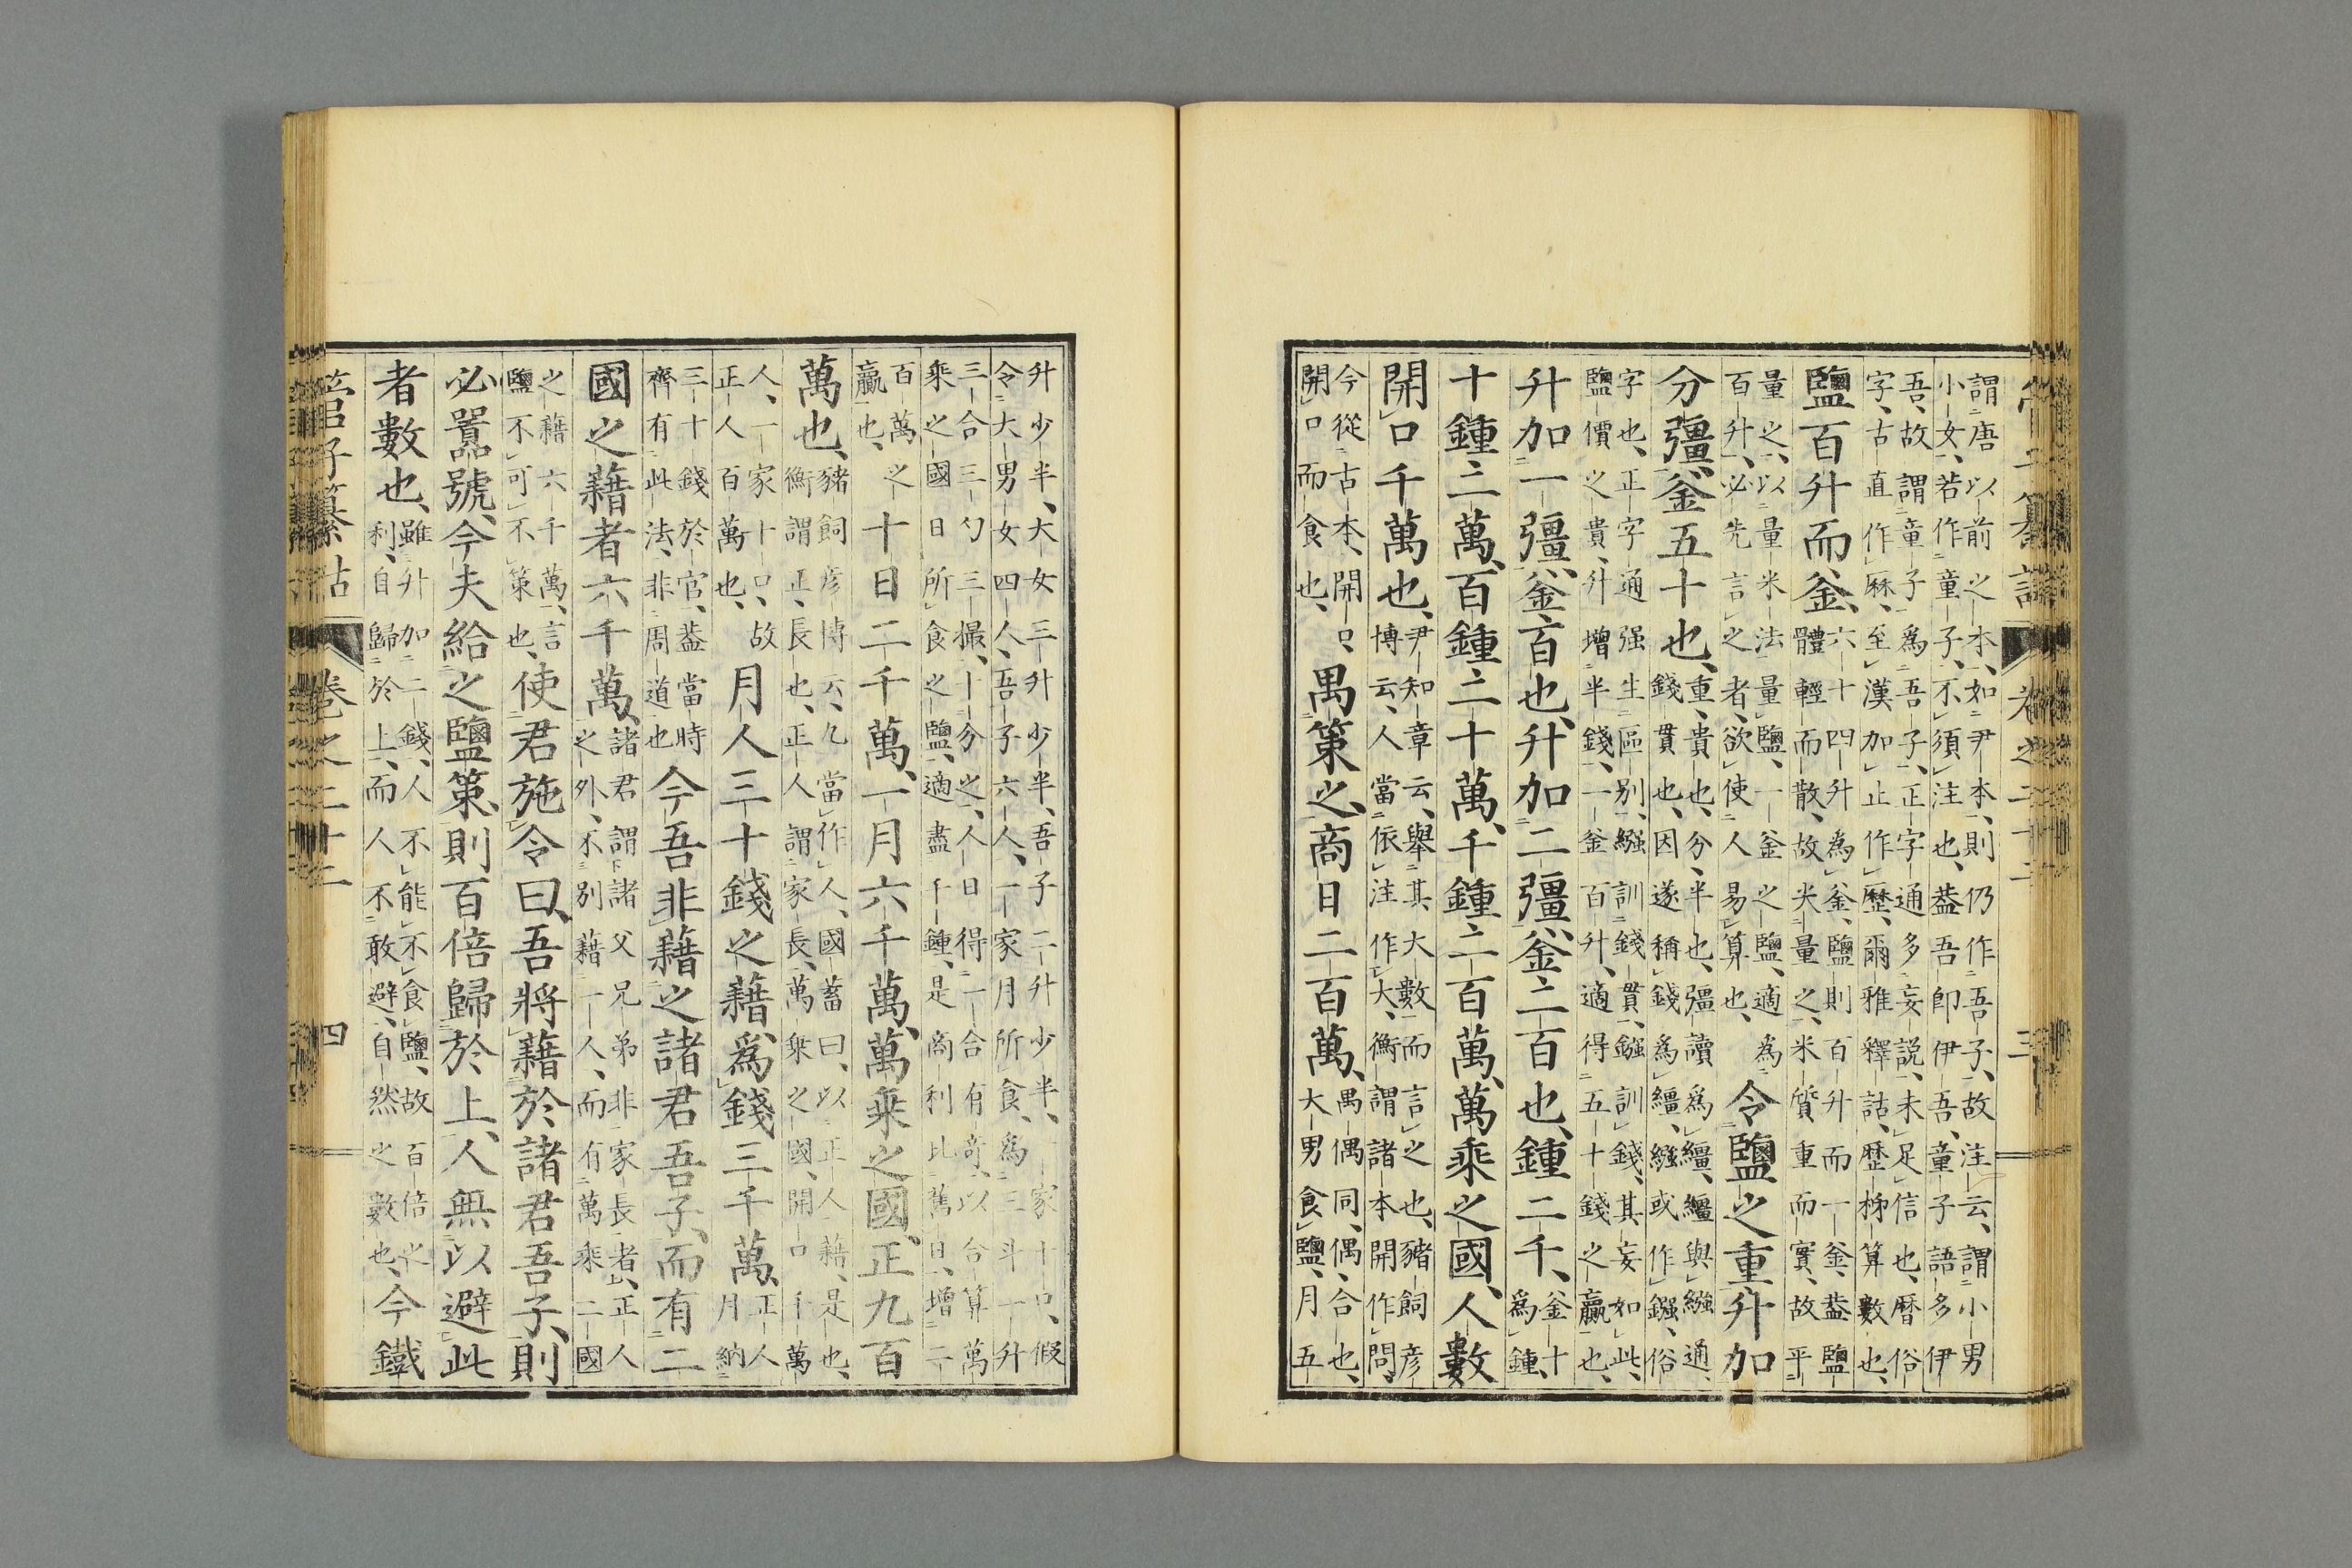 謂唐以前之本、如尹本、則仍作吾子、故注云、謂小男
小女、若作童子、不須注也、蓋吾即伊吾、童子語多伊
吾、故謂童子爲吾子、正字通多妄説、未足信也、曆俗
字、古直作厤、至漢加止作歷、爾雅釋詁、歷秭算數也、
鹽百升而釜、六十四升爲釜、鹽則百升而一釜、蓋鹽
體輕而散、故夾量之、米質重而實、故平
量之、以量米法量鹽、一釜之鹽、適爲
百升、必先言之者、欲使人易算也、令鹽之重升加
分彊、釜五十也、重、貴也、分、半也、彊讀爲繦、繦與繈通、
錢貫也、因遂稱錢爲繦、繈或作鏹、俗
字也、正字通强生區別、繈訓錢貫、鏹訓錢、其妄如此、
鹽價之貴、升增半錢、一釜百升、適得五十錢之贏也、
升加一彊、釜百也、升加二彊、釜二百也、鍾二千、釜十
爲鍾、
十鍾二萬、百鍾二十萬、千鍾二百萬、萬乘之國、人數
開口千萬也、尹知章云、舉其大數而言之也、豬飼彦
博云、人當依注作大、衡謂諸本開作問、
今從古本、開口、
開口而食也、禺策之、商日二百萬、禺偶同、偶、合也、
大男食鹽、月五
升少半、大女三升少半、吾子二升少半、一家十口、假
令大男女四人、吾子六人、一家月所食、爲三斗一升
三合三勺三撮、十分之、人日得一合有奇、以合算萬
乘之國日所食之鹽、適盡千鍾、是商利比舊日、增二
百萬之
贏也、十日二千萬、一月六千萬、萬乘之國、正九百
萬也、豬飼彦博云、九當作人、國蓄曰、以正人藉、是也、
衡謂正、長也、正人謂家長、萬乘之國、開口千萬
人、一家十口、故
正人百萬也、月人三十錢之藉、爲錢三千萬、正人
月納
三十錢於官、蓋當時
齊有此法、非周道也今吾非藉之諸君吾子、而有二
國之藉者六千萬、諸君謂諸父兄弟非家長者、正人
之外、不別藉一人、而有萬乘二國
之藉六千萬、言
鹽不可不策也、使君施令曰、吾將藉於諸君吾子、則
必囂號、今夫給之鹽策、則百倍歸於上、人無以避此
者數也、雖升加二錢、人不能不食鹽、故百倍之
利、自歸於上、而人不敢避、自然之數也、今鐵
管子纂詁
卷之二十二
四